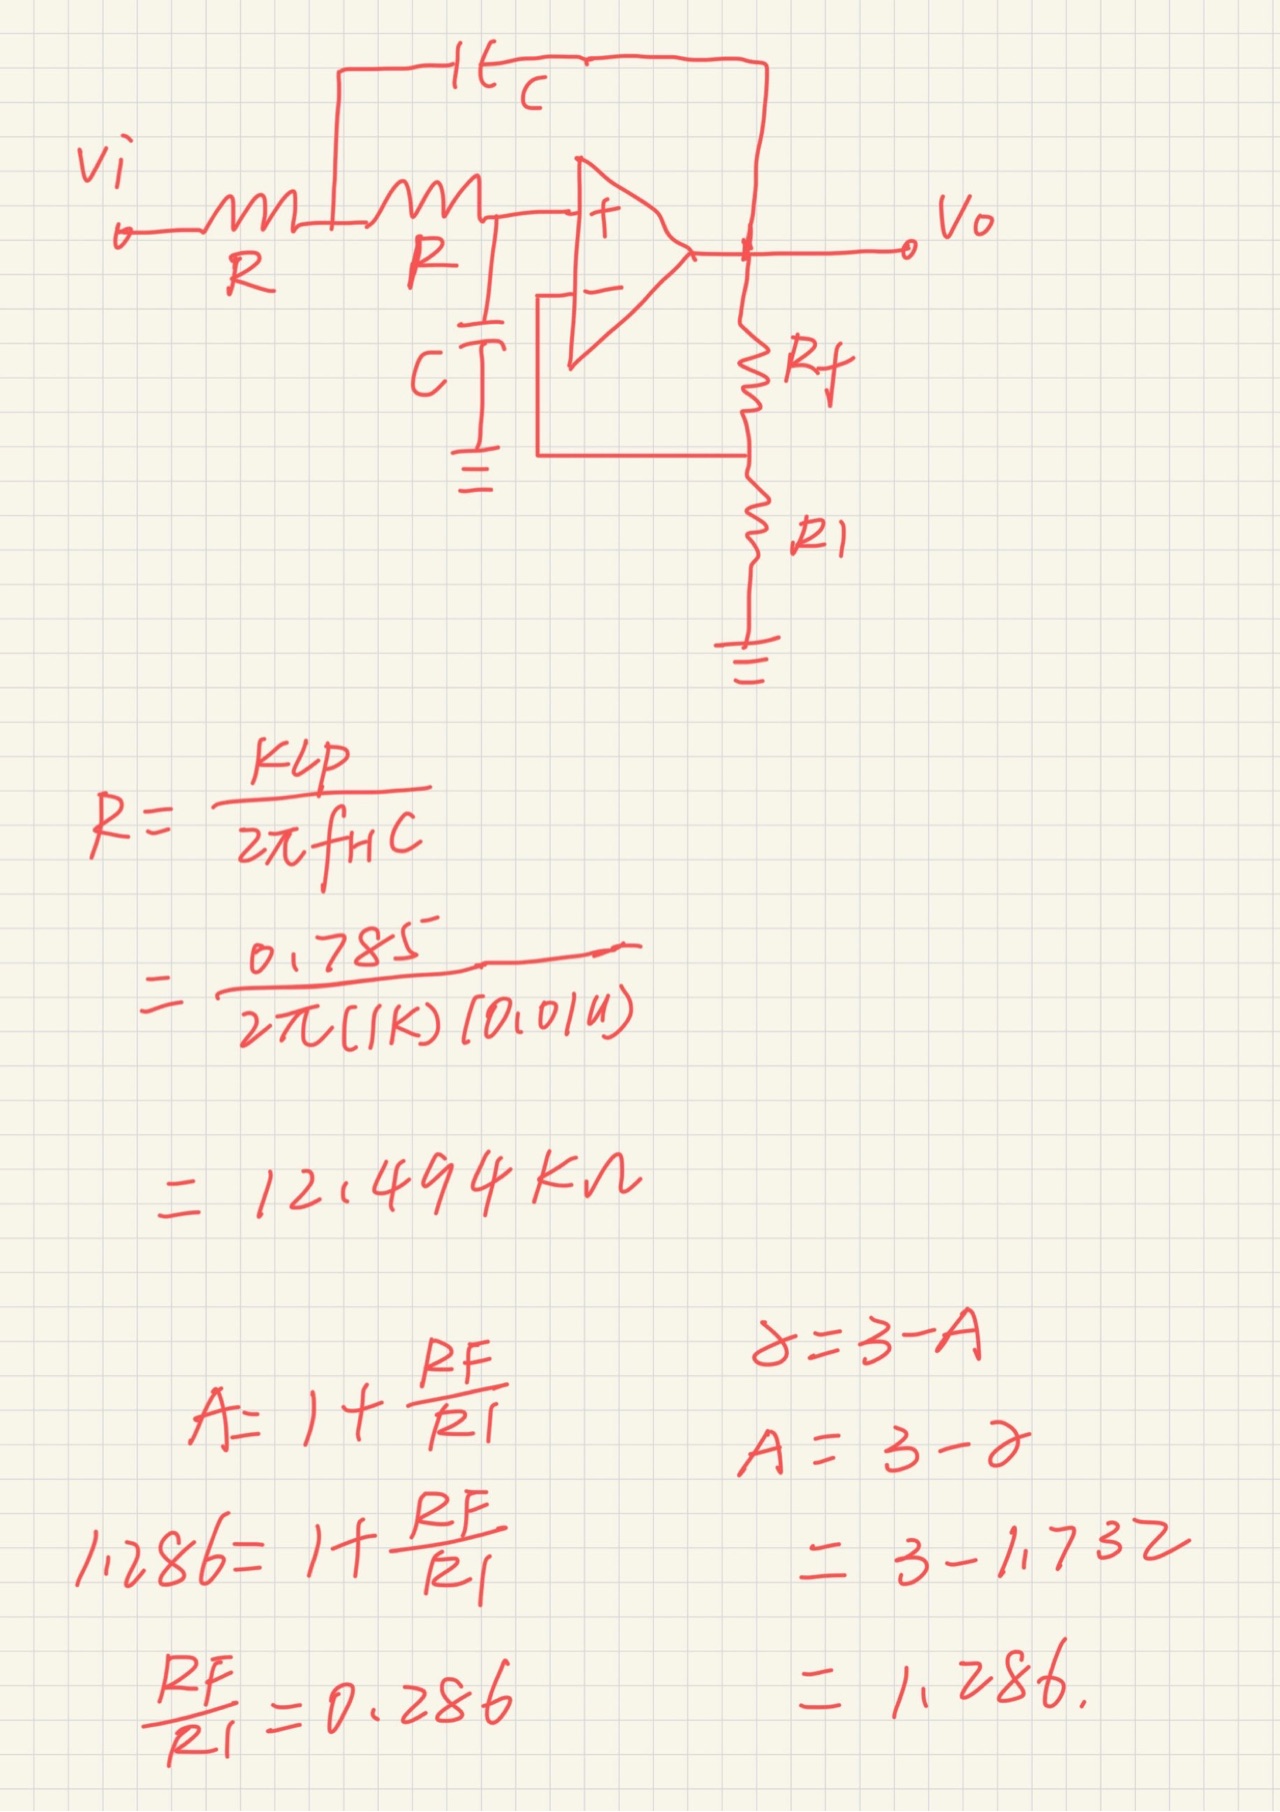 C
Vi
R
R
+
-
Vo
C
Rf
R1
R = KLP / 2π fH C
= 0.785 / 2π(1K)(0.01u)
= 12.494 KΩ
A = 1 + RF / R1
1.286 = 1 + RF / R1
RF / R1 = 0.286
γ = 3 - A
A = 3 - γ
= 3 - 1.732
= 1.286.